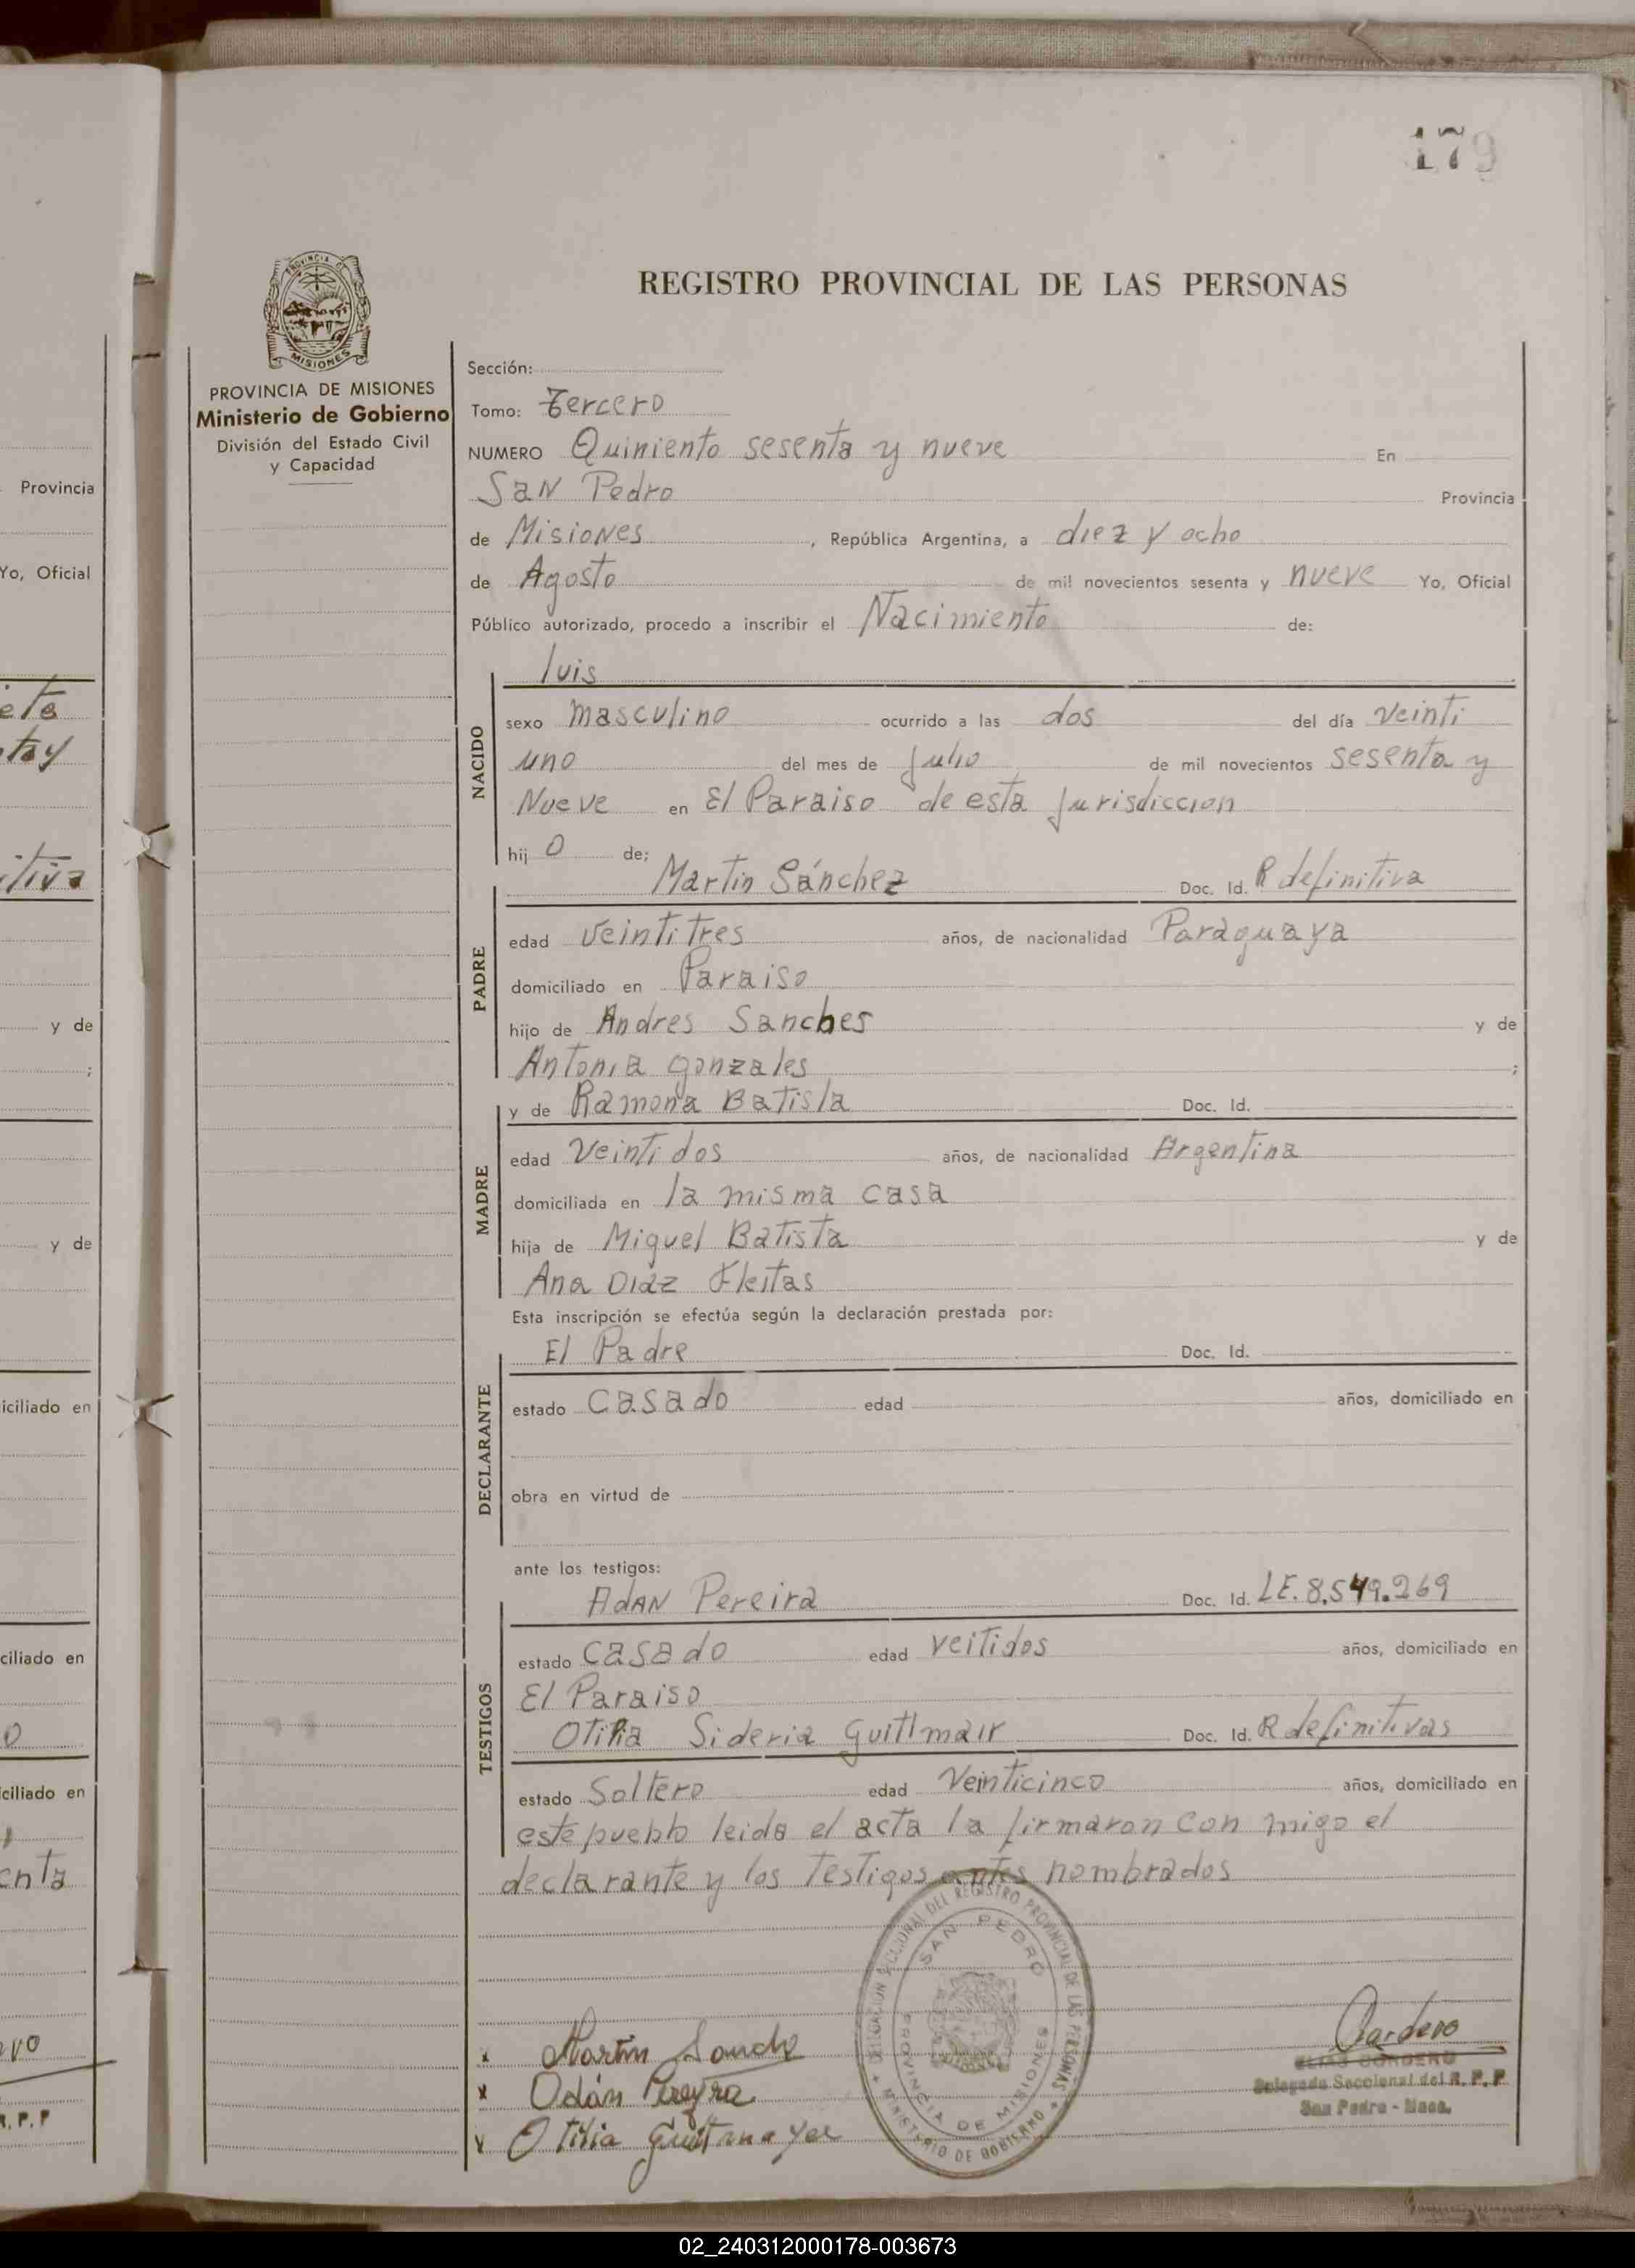 179
REGISTRO PROVINCIAL DE LAS PERSONAS
PROVINCIA DE MISIONES
PROVINCIA DE MISIONES
Ministerio de Gobierno
División del Estado Civil
y Capacidad
Sección:
Tomo: Tercero
NUMERO Quiniento sesenta y nueve En
San Pedro Provincia
de Misiones, República Argentina, a diez y ocho
de Agosto de mil novecientos sesenta y nueve Yo, Oficial
Público autorizado, procedo a inscribir el Nacimiento de:
luis
NACIDO
sexo masculino ocurrido a las dos del día veinti
uno del mes de Julio de mil novecientos sesenta y
Nueve en El Paraiso de esta Jurisdiccion
hijo de;
Martin Sánchez Doc. Id. R definitiva
PADRE
edad veintitres años, de nacionalidad Paraguaya
domiciliado en Paraiso
hijo de Andres Sanches y de
Antonia gonzales;
MADRE
y de Ramona Batista Doc. Id.
edad Veinti dos años, de nacionalidad Argentina
domiciliada en la misma casa
hija de Miguel Batista y de
Ana Diaz Fleitas
Esta inscripción se efectúa según la declaración prestada por:
DECLARANTE
El Padre Doc. Id.
estado casado edad años, domiciliado en
obra en virtud de
ante los testigos:
TESTIGOS
Adan Pereira Doc. Id. LE. 8.549.269
estado casado edad veitidos años, domiciliado en
El Paraiso
Otilia Sideria Guitlmair Doc. Id. R definitivas
estado Soltero edad Veinticinco años, domiciliado en
este pueblo leida el acta la firmaron con migo el
declarante y los Testigos antes nombrados
DELEGACION SECCIONAL DEL REGISTRO PROVINCIAL DE LAS PERSONAS
SAN PEDRO
PROVINCIA DE MISIONES
MINISTERIO DE GOBIERNO
x Martin Sanche
x Odán Pereyra
x Otilia Guitmayer
Cordero
ELIAS CORDERO
Delegado Seccional del R. P. P
San Pedro - Mnes.
Provincia
Yo, Oficial
y de
;
y de
iciliado en
ciliado en
ciliado en
R. P. P
02_240312000178-003673